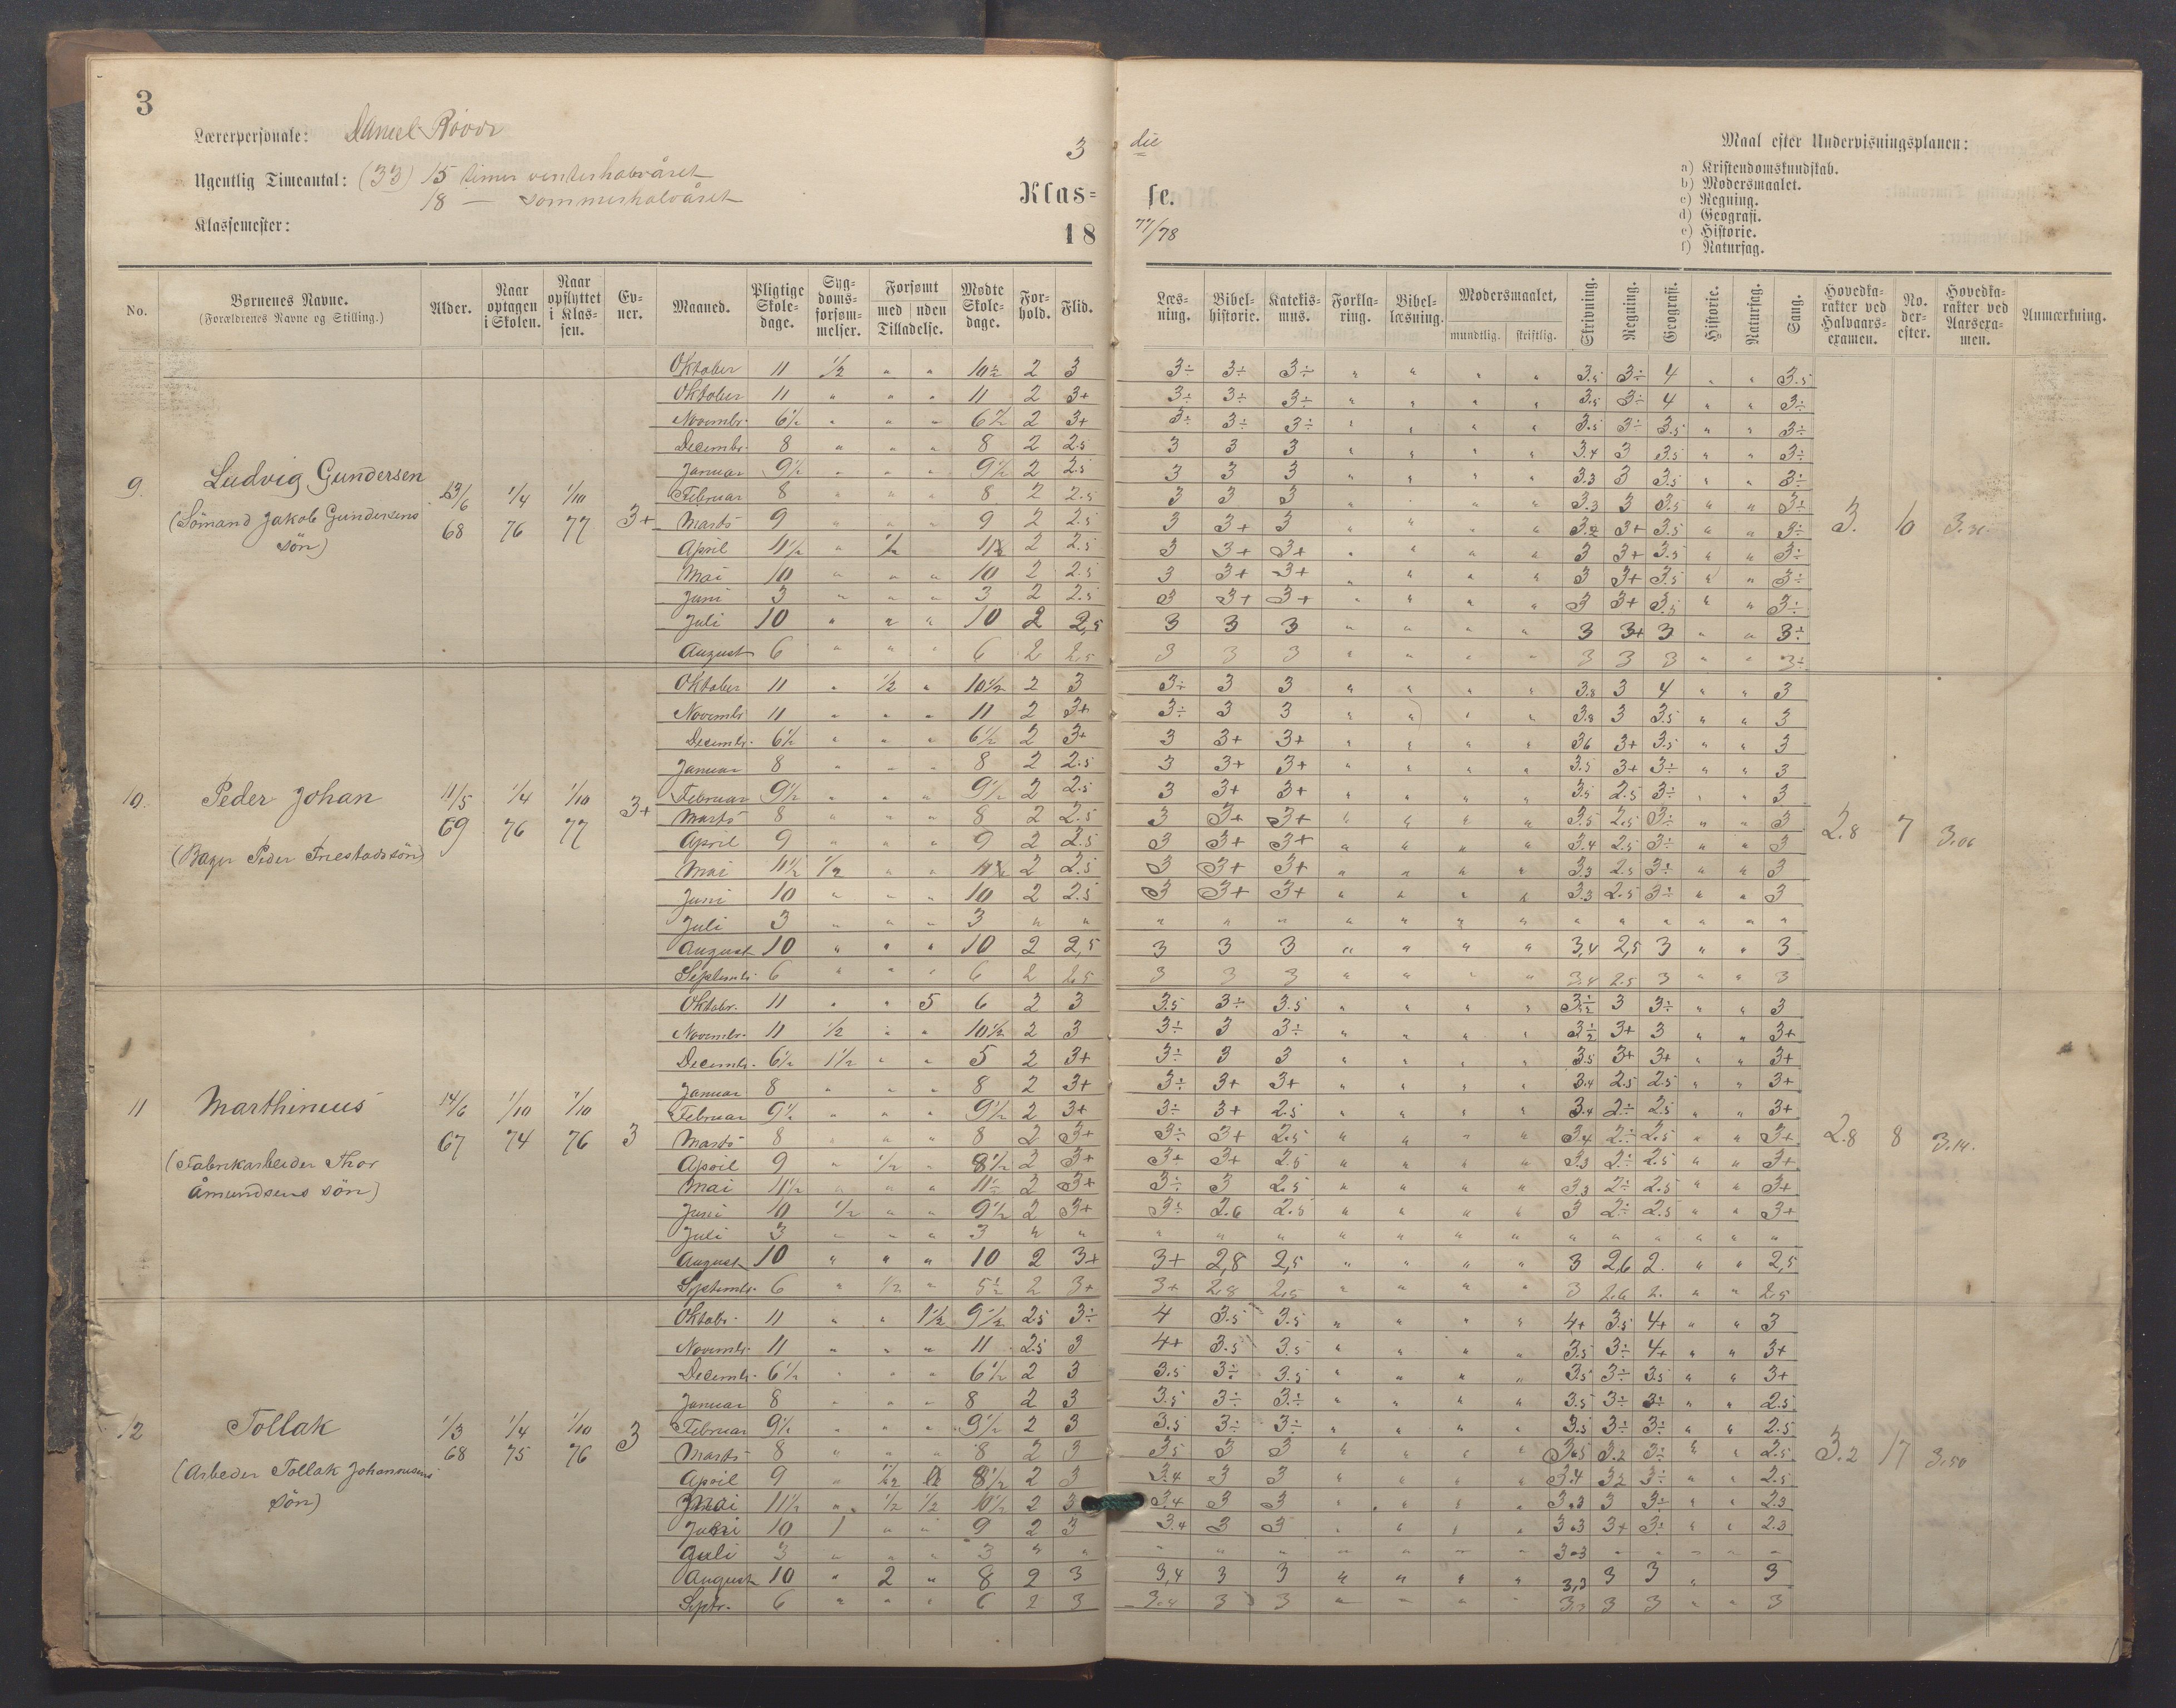 3
Lærerpersonale: Daniel
Ugentlig Timeantal: (33) 15 timer vinterhalvåret
18 — sommerhalvåret
Klassemester:
3 die
Klas= se.
18 77/78
Maal efter Undervisningsplanen:
a) Kristendomskundskab.
b) Modersmaalet.
c) Regning.
d) Geografi.
e) Historie.
f) Naturfag.
No. Børnenes Navne. (Forældrenes Navne og Stilling.) Alder. Naar optagen i Skolen. Naar opflyttet i Klassen. Evner. Maaned. Pligtige Skoledage. Sygdomsforsømmelser. Forsømt med uden Tilladelse. Mødte Skoledage. Forhold. Flid. Læsning. Bibelhistorie. Katekismus. Forklaring. Bibellæsning. Modersmaalet, mundtlig. skriftlig. Skrivning. Regning. Geografi. Historie. Naturfag. Sang. Hovedkarakter ved Halvaarsexamen. No. derefter. Hovedkarakter ved Aarsexamen. Anmærkning.
9. Ludvig Gundersen 13/6 68 1/4 76 1/10 77 3+
(Sömand Jakob Gundersens sön)
Oktober 11 1/2 " " 10 1/2 2 3 3÷ 3÷ 3÷ " " " " 3.5 3÷ 4 " " 3.5
Oktober 11 " " " 11 2 3+ 3÷ 3÷ 3÷ " " " " 3.5 3÷ 4 " " 3÷
Novembr. 6 1/2 " " " 6 1/2 2 3+ 3÷ 3÷ 3÷ " " " " 3.5 3÷ 3.5 " " 3÷
Decembr. 8 " " " 8 2 2.5 3 3 3 " " " " 3.4 3 3.5 " " 3÷
Januar 9 1/2 " " " 9 1/2 2 2.5 3 3 3 " " " " 3.3 3 3.5 " " 3÷
Februar 8 " " " 8 2 2.5 3 3 3 " " " " 3.3 3 3.5 " " 3÷
Marts 9 " " " 9 2 2.5 3 3+ 3 " " " " 3.2 3+ 3.5 " " 3÷
April 11 1/2 " 1/2 2 2.5 3 3+ 3+ " " " " 3 3+ 3.5 " " 3÷
Mai 10 " " " 10 2 2.5 3 3+ 3+ " " " " 3 3+ 3.5 " " 3÷
Juni 3 " " " 3 2 2.5 3 3+ 3+ " " " " 3 3+ 3.5 " " 3÷
Juli 10 " " " 10 2 2,5 3 3 3 " " " " 3 3+ 3 " " 3÷
August 6 " " " 6 2 2.5 3 3 3 " " " " 3 3 3 " " 3÷
3. 10
10. Peder Johan 11/5 69 1/4 76 1/10 77 3+
(Bager Peder sön)
Oktober 11 " 1/2 " 10 1/2 2 3 3÷ 3 3 " " " " 3.8 3 4 " " 3
Novembr 11 " " " 11 2 3+ 3÷ 3 3 " " " " 3.8 3 3.5 " " 3
Decembr. 6 1/2 " " " 6 1/2 2 3+ 3 3+ 3+ " " " " 3.6 3+ 3.5 " " 3
Januar 8 " " " 8 2 2.5 3 3+ 3+ " " " " 3.5 3+ 3÷ " " 3
Februar 9 1/2 " " " 9 1/2 2 2.5 3 3+ 3+ " " " " 3.5 2.5 3÷ " " 3
Marts 8 " " " 8 2 2.5 3 3+ 3+ " " " " 3.5 2.5 3÷ " " 3
April 9 " " " 9 2 2.5 3 3+ 3+ " " " " 3.4 2.5 3÷ " " 3
Mai 11 1/2 1/2 " " 2 2.5 3 3+ 3+ " " " " 3.3 2.5 3÷ " " 3
Juni 10 " " " 10 2 2.5 3 3+ 3+ " " " " 3.3 2.5 3÷ " " 3
Juli 3 " " " 3 " " " " " " " " " " " " " " "
August 10 " " " 10 2 2,5 3 3 3 " " " " 3,4 2,5 3 " " 3
Septembr. 6 " " " 6 2 2.5 3 3 3 " " " " 3.4 2.5 3 " " 3
2.8 7 3.06
11 Marthineus 14/6 67 1/10 74 1/10 76 3
(Fabrikarbeider Thor Åmundsens sön)
Oktobr. 11 " " 5 6 2 3 3.5 3÷ 3.5 " " " " 3÷ 3 3÷ " " 3
Novembr. 11 1/2 " " 10 1/2 2 3 3÷ 3 3÷ " " " " 3÷ 3+ 3 " " 3+
Decembr. 6 1/2 1 1/2 " " 5 2 3+ 3÷ 3 3 " " " " 3.5 3+ 3+ " " 3+
Januar 8 " " " 8 2 3+ 3÷ 3+ 3+ " " " " 3.4 2.5 2.5 " " 3+
Februar 9 1/2 " " " 9 1/2 2 3+ 3÷ 3+ 2.5 " " " " 3.4 2÷ 2.5 " " 3+
Marts 8 " " " 8 2 3+ 3÷ 3+ 2.5 " " " " 3.4 2÷ 2.5 " " 3+
April 9 " 1/2 " 8 1/2 2 3+ 3÷ 3+ 2.5 " " " " 3.3 2÷ 2.5 " " 3+
Mai 11 1/2 " " " 11 1/2 2 3+ 3÷ 3 2.5 " " " " 3.3 2÷ 2.5 " " 3+
Juni 10 1/2 " " 9 1/2 2 3+ 3÷ 2.6 2.5 " " " " 3 2÷ 2.5 " " 3+
Juli 3 " " " 3 " " " " " " " " " " " " " " "
August 10 " " " 10 2 3+ 3+ 2,8 2,5 " " " " 3 2,6 2. " " 2,5
Septembr. 6 " 1/2 " 5 1/2 2 3+ 3+ 2.8 2.5 " " " " 3 2.6 2. " " 2.5
2.8 8 3.14.
12 Tollak 1/3 68 1/4 75 1/10 76 3
(Arbeder Tollak sön)
Oktobr. 11 " " 1 1/2 9 1/2 2.5 3÷ 4 3.5 3.5 " " " " 4+ 3.5 4+ " " 3
Novembr. 11 " " " 11 2.5 3 4+ 3.5 3.5 " " " " 3.5 3÷ 4+ " " 3+
Decembr. 6 1/2 " " " 6 1/2 2 3 3.5 3÷ 3.5 " " " " 3.5 3÷ 3.5 " " 3+
Januar 8 " " " 8 2 3 3.5 3÷ 3÷ " " " " 3.5 3÷ 3÷ " " 2.5
Februar 9 1/2 " " " 9 1/2 2 3 3.5 3÷ 3÷ " " " " 3.5 3÷ 3÷ " " 2.5
Marts 8 " " " 8 2 3 3.5 3 3 " " " " 3.5 3.2 3÷ " " 2.5
April 9 " 1/2 8 1/2 2 3 3.4 3 3 " " " " 3.4 3.2 3÷ " " 2.5
Mai 11 1/2 " 1/2 1/2 10 1/2 2 3 3.4 3 3 " " " " 3.3 3 3÷ " " 2.3
Juni 10 1 " " 9 2 3 3.4 3 3 " " " " 3.3 3+ 3÷ " " 2.3
Juli 3 " " " 3 " " " " " " " " " 3.3 " " " " "
August 10 " 2 " 8 2 3 3,4 3 3 " " " " 3,3 3 3 " 3
Septr. 6 " " " 6 2 3 3.4 3 3 " " " " 3.3 3 3 " " 3
3.2 17 3.50